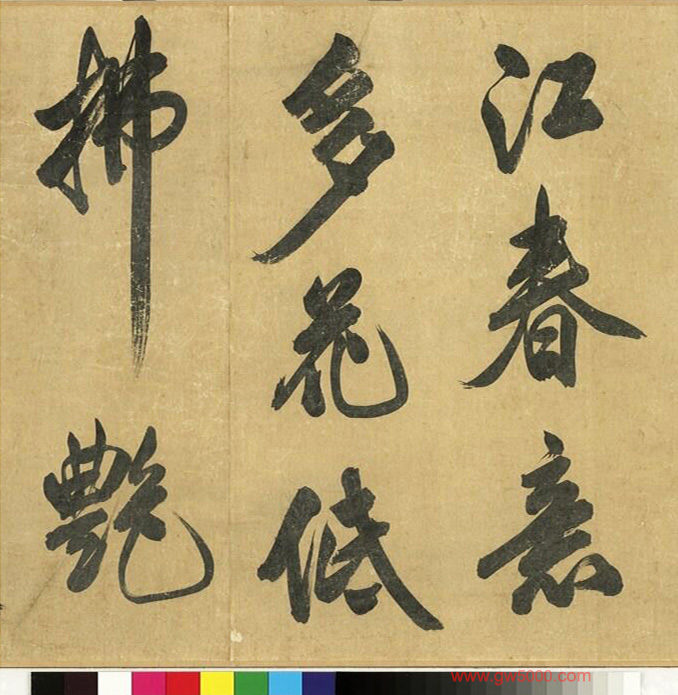 江春意
多花低
拂艷
www.gw5000.com